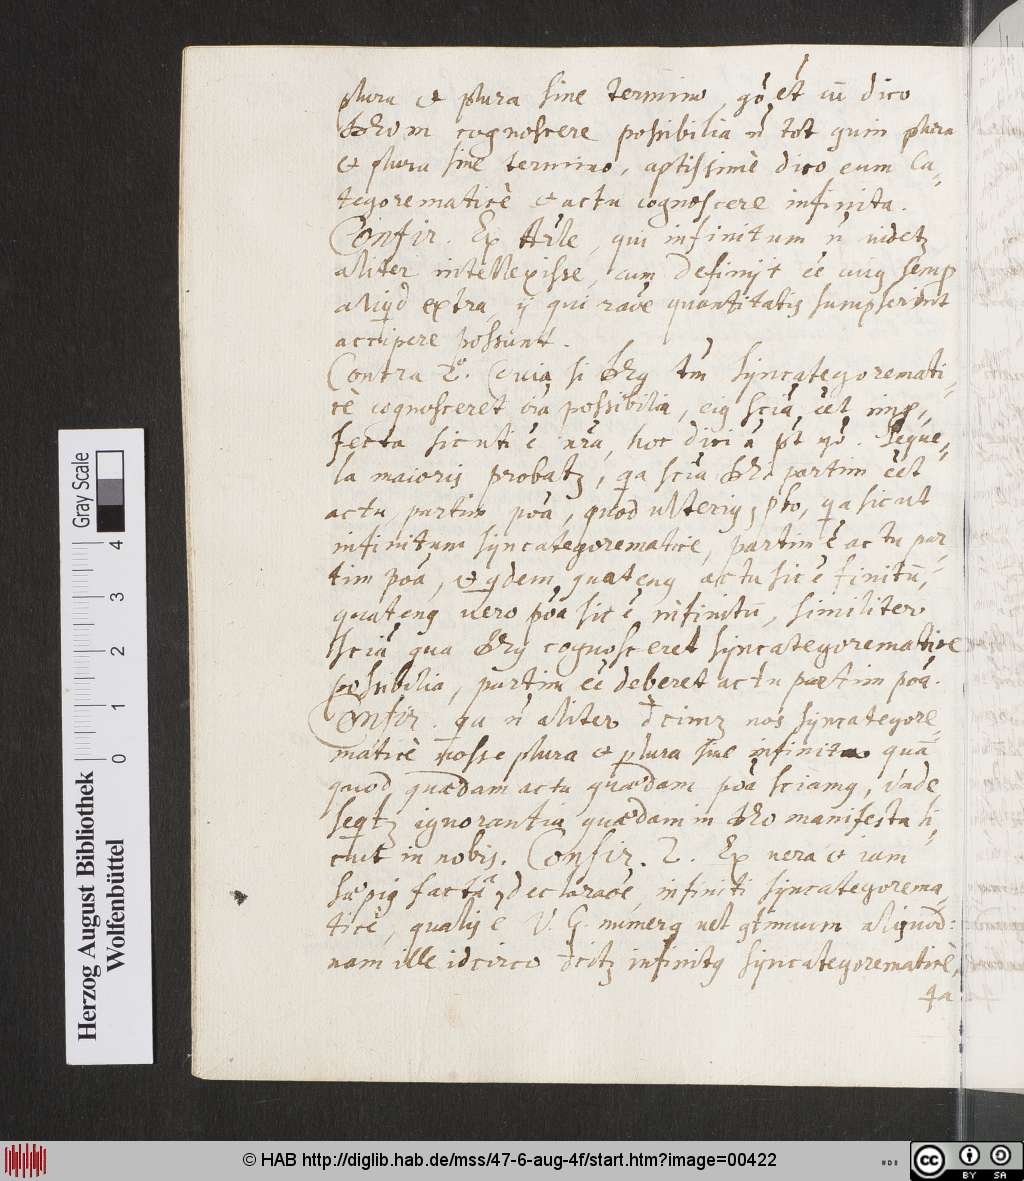 plura et plura sine termino, gő ét cū dico
cognoscere possibilia ń tot quin plura
et plura sine termino, aptissimè dico eum Ca-
tegorematicè et actu cognoscere infinita.
Confir. Ex Arle, qui infinitum ń videtʒ
aliter intellexisse, cum definijt ée cuiꝰ semp
aliqd extra, ij qui raõe quantitatis sumpserint
accipere possunt.
Contra 2º. Quia si tḿ syncategoremati-
cè cognosceret oīa possibilia, eiꝰ scīa éet imp-
fecta sicuti é nrā, hoc dici ń pt gő. Seque-
la maioris probatʒ, qa scīa partim éet
actu partim poā, quod ulteriꝰ pbo, qa sicut
infinitum syncategorematice, partim é actu par-
tim poā, et qdem quatenꝰ actu sic é finitū,
quatenꝰ vero poā sic é infinitū, similiter
scīa qua cognosceret syncategorematice
possibilia, partim ée deberet actu partim poā.
Confir. qa ń aliter dcimʒ nos syncategore-
maticè nosse plura et plura sine infinita quā
quod quædam actu quædam poā sciamꝰ, Unde
seqtʒ ignorantia quædam in manifesta si-
cut in nobis. Confir. 2. Ex vera et iam
sæpiꝰ facta declaraõe infiniti syncategorema-
ticè, qualis é V. G. numerꝰ vel aliquod:
nam ille idcirco dcitʒ infinitꝰ syncategorematicè,
qa
Gray Scale
0 1 2 3 4
Herzog August Bibliothek
Wolfenbüttel
© HAB http://diglib.hab.de/mss/47-6-aug-4f/start.htm?image=00422
cc BY SA